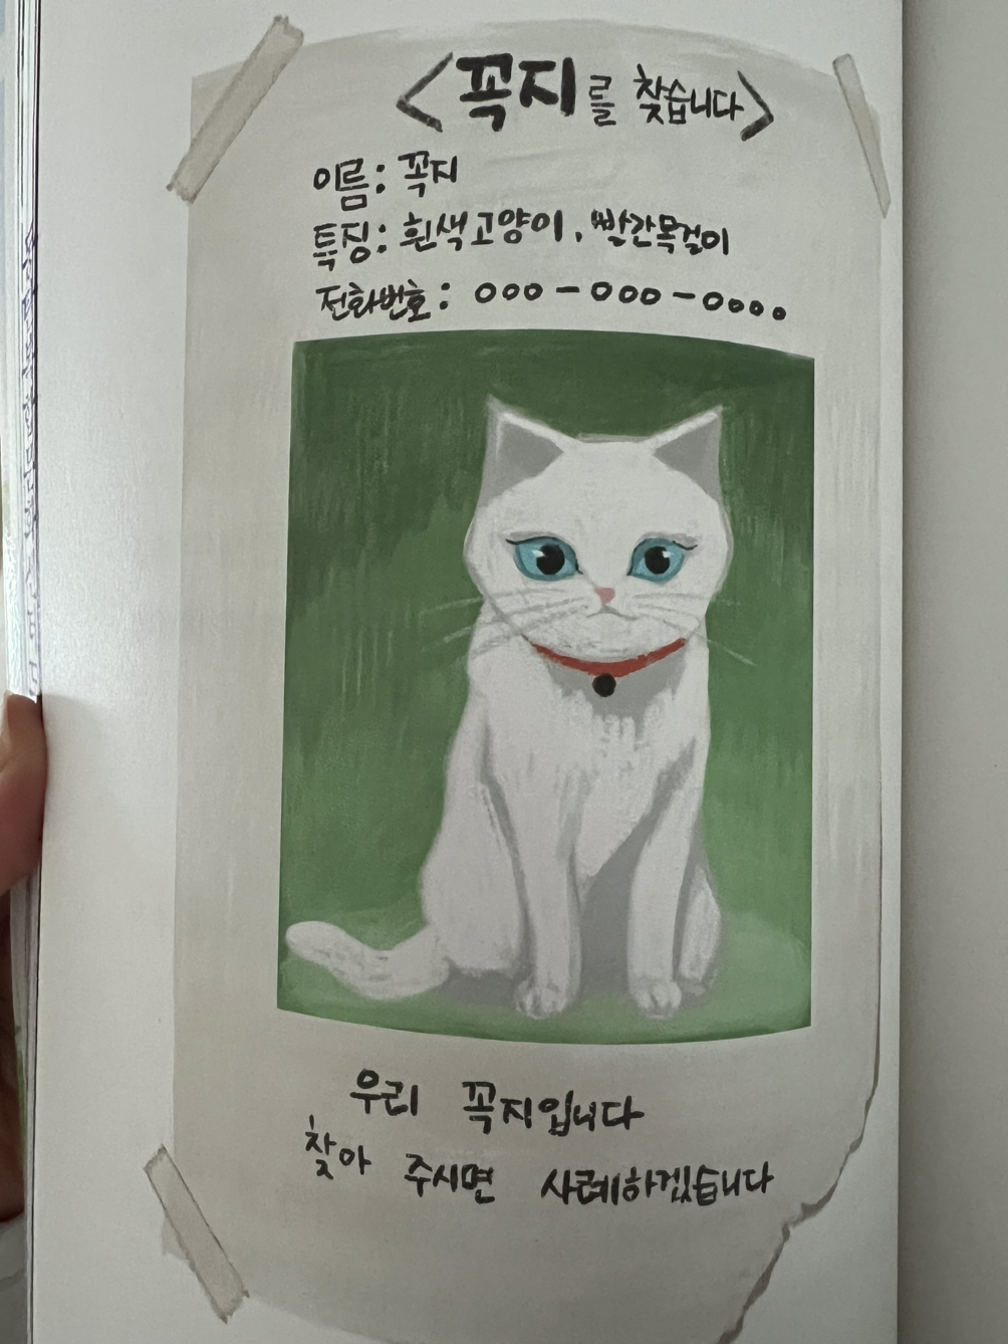 <꼭지를 찾습니다>
이름: 꼭지
특징: 흰색고양이, 빨간목걸이
전화번호: 000-000-0000
우리 꼭지입니다
찾아 주시면 사례하겠습니다